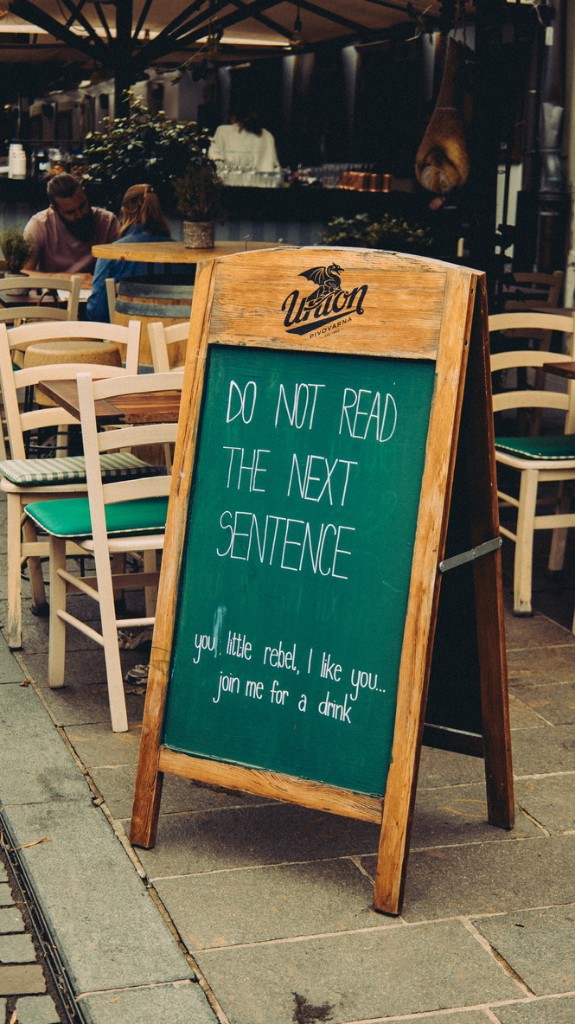 Union
PIVOVARNA
DO NOT READ
THE NEXT
SENTENCE
you little rebel, I like you...
join me for a drink